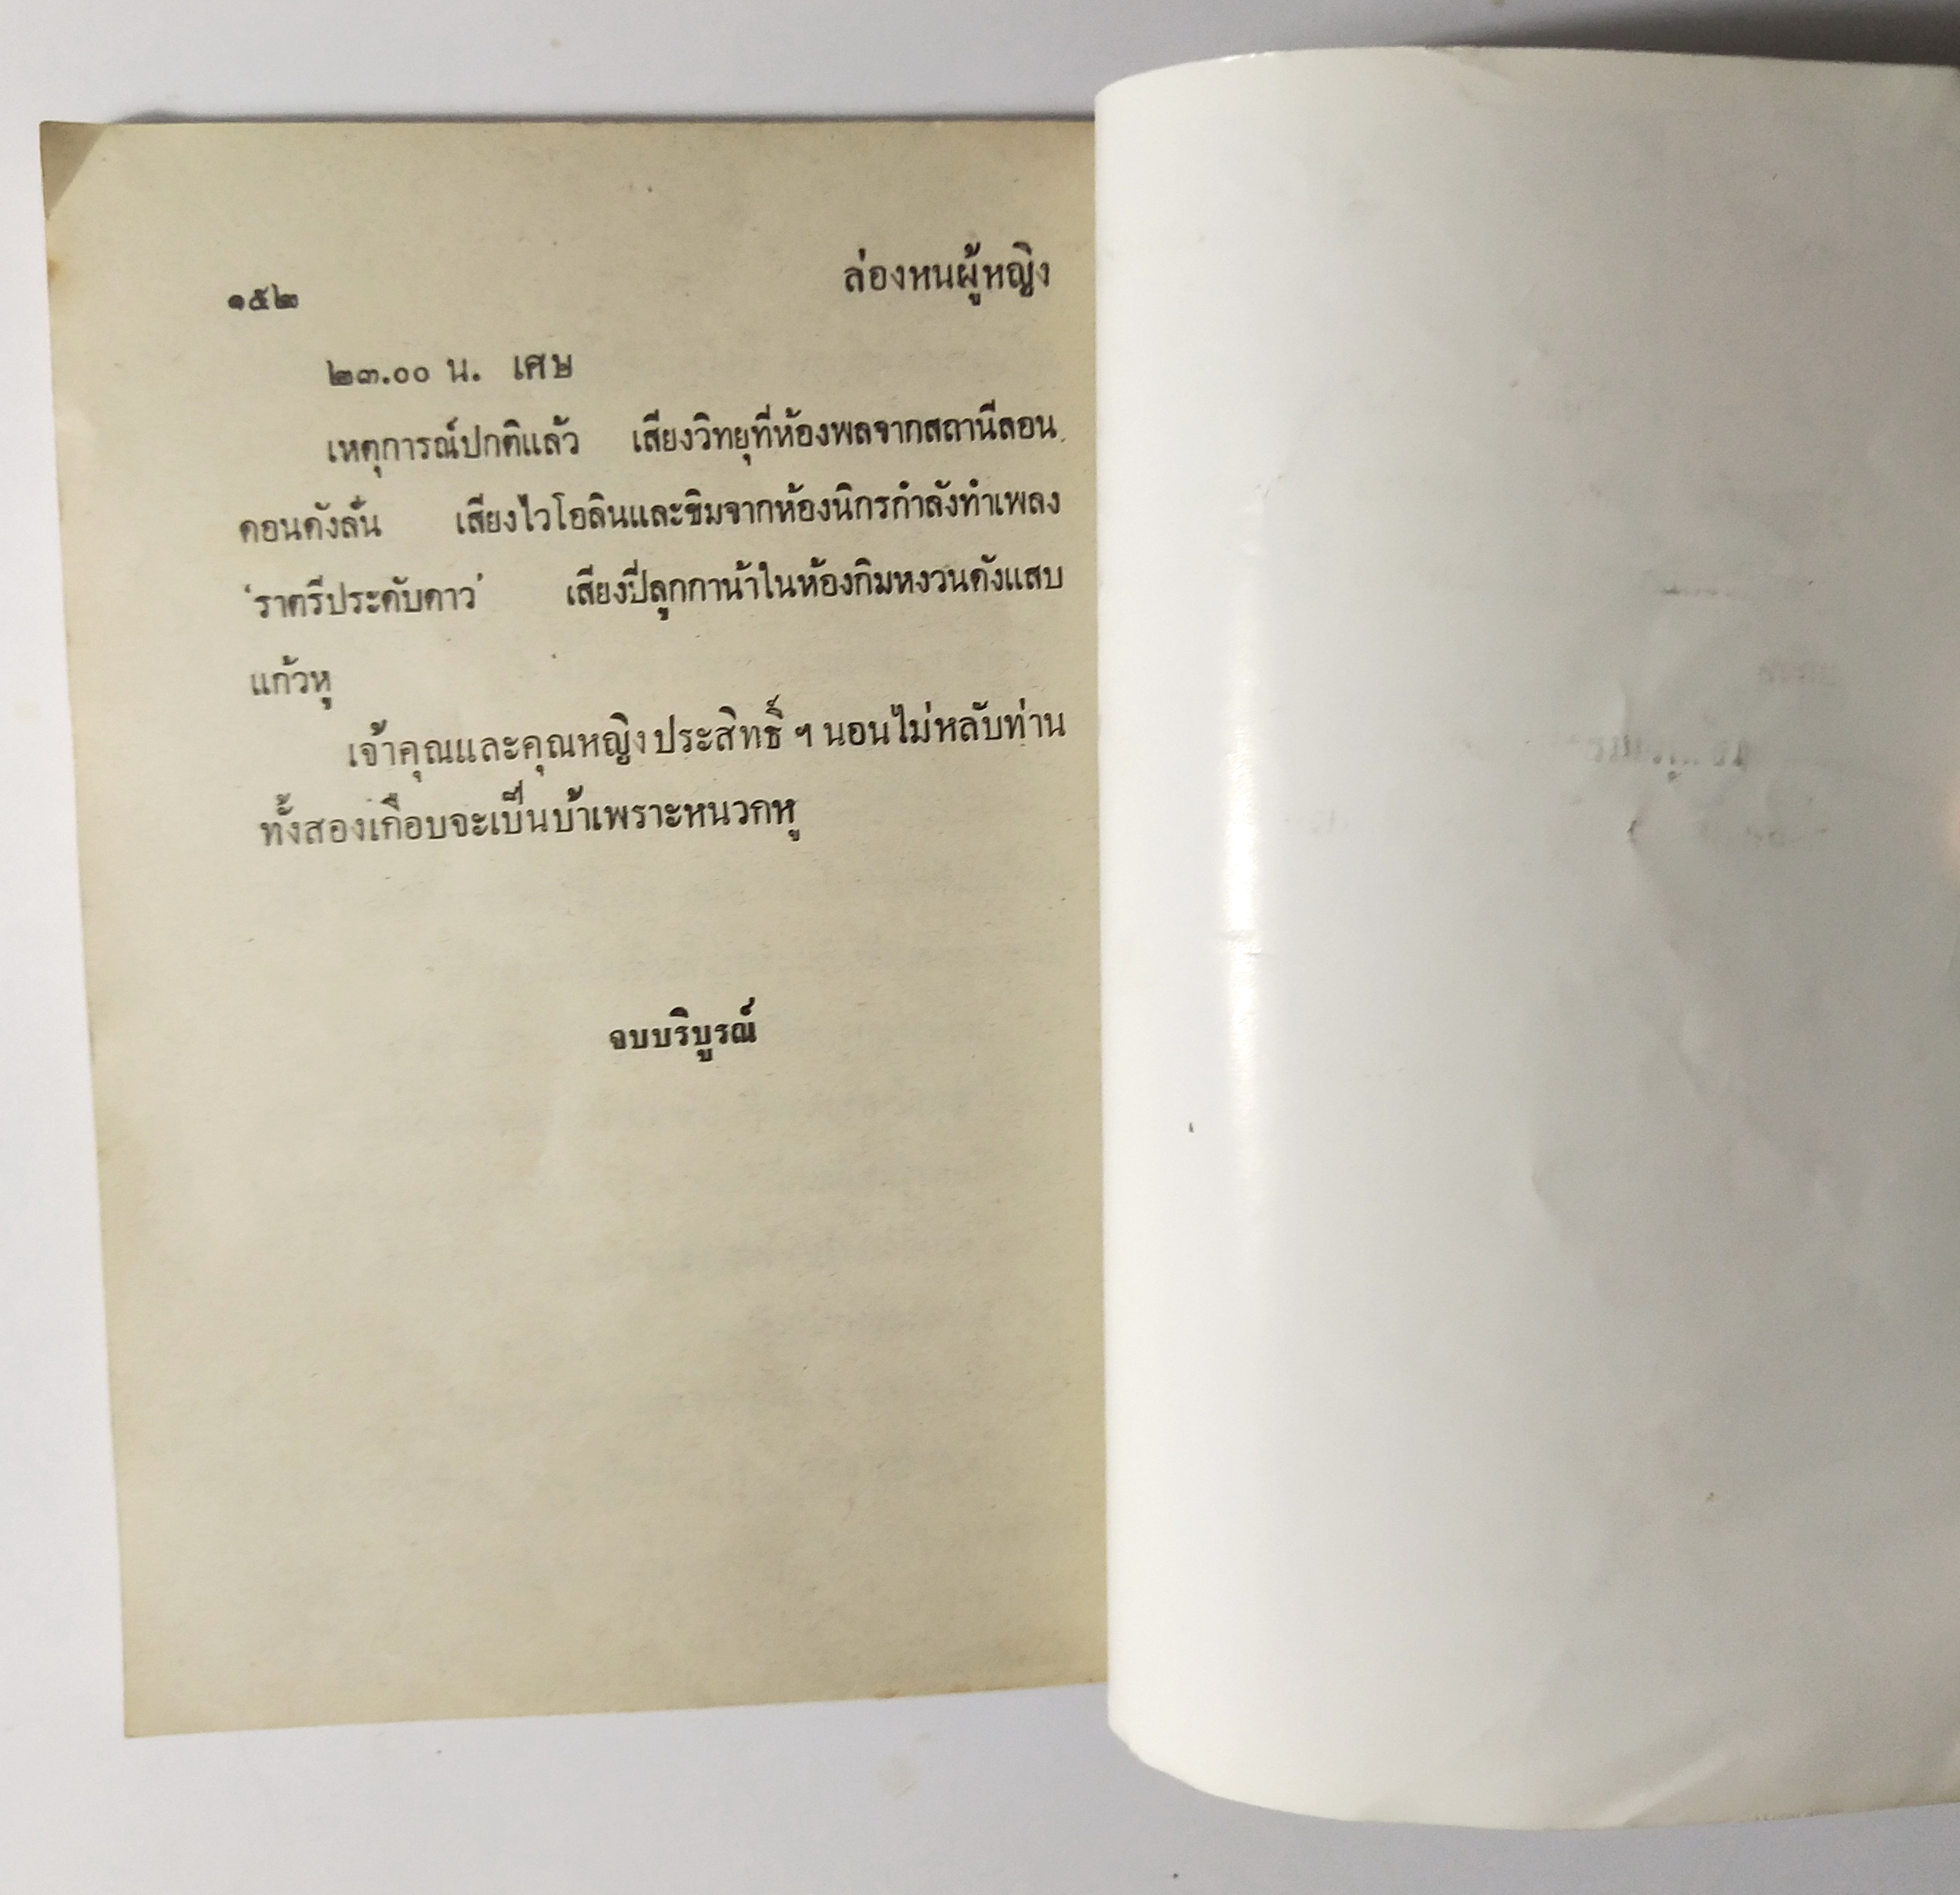 ๑๕๒ ล่องหนผู้หญิง
๒๓.๐๐ น. เศษ
เหตุการณ์ปกติแล้ว เสียงวิทยุที่ห้องพลจากสถานีลอน
ดอนดังลั่น เสียงไวโอลินและขิมจากห้องนิกรกำลังทำเพลง
'ราตรีประดับดาว' เสียงปี่ลูกกาน้าในห้องกิมหงวนดังแสบ
แก้วหู
เจ้าคุณและคุณหญิงประสิทธิ์ ฯ นอนไม่หลับท่าน
ทั้งสองเกือบจะเป็นบ้าเพราะหนวกหู
จบบริบูรณ์